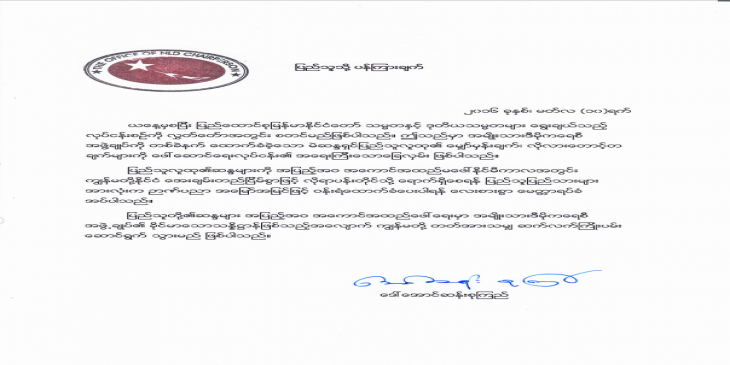 THE OFFICE OF NLD CHAIRPERSON
ပြည်သူသို့ ပန်ကြားချက်
၂၀၁၆ ခုနှစ်၊ မတ်လ (၁၀)ရက်
ယနေ့မှစပြီး ပြည်ထောင်စုမြန်မာနိုင်ငံတော် သမ္မတနှင့် ဒုတိယသမ္မတများ ရွေးချယ်သည့်
လုပ်ငန်းစဉ်ကို လွှတ်တော်အတွင်း စတင်မည်ဖြစ်ပါသည်။ ဤသည်မှာ အမျိုးသားဒီမိုကရေစီ
အဖွဲ့ချုပ်ကို တစ်ခဲနက် ထောက်ခံခဲ့သော မဲဆန္ဒရှင်ပြည်သူလူထု၏ မျှော်မှန်းချက်၊ လိုလားတောင့်တ
ချက်များကို ဖော်ဆောင်ရေးလုပ်ငန်း၏ အရေးကြီးသောခြေလှမ်း ဖြစ်ပါသည်။
ပြည်သူလူထု၏ဆန္ဒများကို အပြည့်အဝ အကောင်အထည်မဖော်နိုင်မီကာလအတွင်း
ကျွန်မတို့နိုင်ငံ အေးချမ်းတည်ငြိမ်စွာဖြင့် လိုရာပန်းတိုင်သို့ ရောက်ရှိစေရန် ပြည်သူပြည်သားများ
အားလုံးက ဉာဏ်ပညာ အမြော်အမြင်ဖြင့် ဝန်းရံထောက်ခံပေးပါရန် လေးစားစွာ မေတ္တာရပ်ခံ
အပ်ပါသည်။
ပြည်သူတို့၏ဆန္ဒများ အပြည့်အဝ အကောင်အထည်ဖော်ရေးမှာ အမျိုးသားဒီမိုကရေစီ
အဖွဲ့ချုပ်၏ ခိုင်မာသောသန္နိဋ္ဌာန်ဖြစ်သည့်အလျောက် ကျွန်မတို့ တတ်အားသမျှ ဆက်လက်ကြိုးပမ်း
ဆောင်ရွက် သွားမည် ဖြစ်ပါသည်။
ဒေါ်အောင်ဆန်းစုကြည်